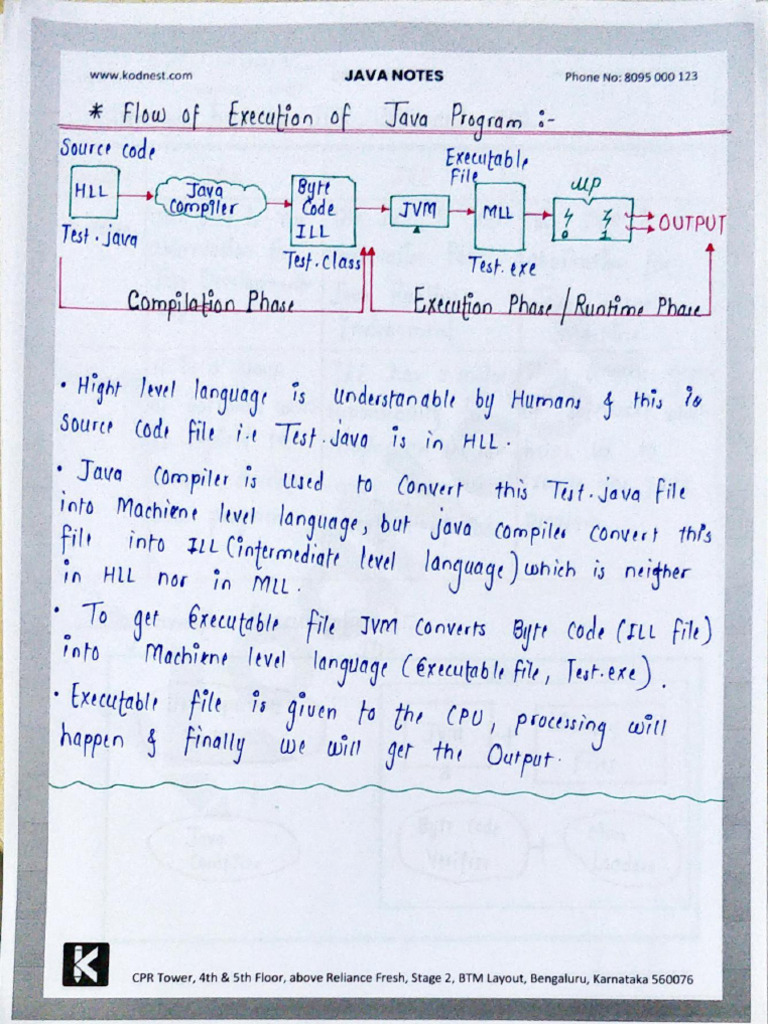 www.kodnest.com JAVA NOTES Phone No: 8095 000 123
* Flow of Execution of Java Program :-
Source code
HLL
Test.java
Java
Compiler
Byte
Code
ILL
Test.class
JVM
Executable
File
MLL
Test.exe
μp
OUTPUT
Compilation Phase
Execution Phase / Runtime Phase
• Hight level language is understanable by Humans & this is
source code file i.e Test.java is in HLL.
• Java compiler is used to convert this Test.java file
into Machiene level language, but java compiler convert this
file into ILL (intermediate level language) which is neigher
in HLL nor in MLL.
• To get executable file JVM converts Byte code (ILL file)
into Machiene level language (executable file, Test.exe).
• Executable file is given to the CPU, processing will
happen & finally we will get the Output.
K
CPR Tower, 4th & 5th Floor, above Reliance Fresh, Stage 2, BTM Layout, Bengaluru, Karnataka 560076